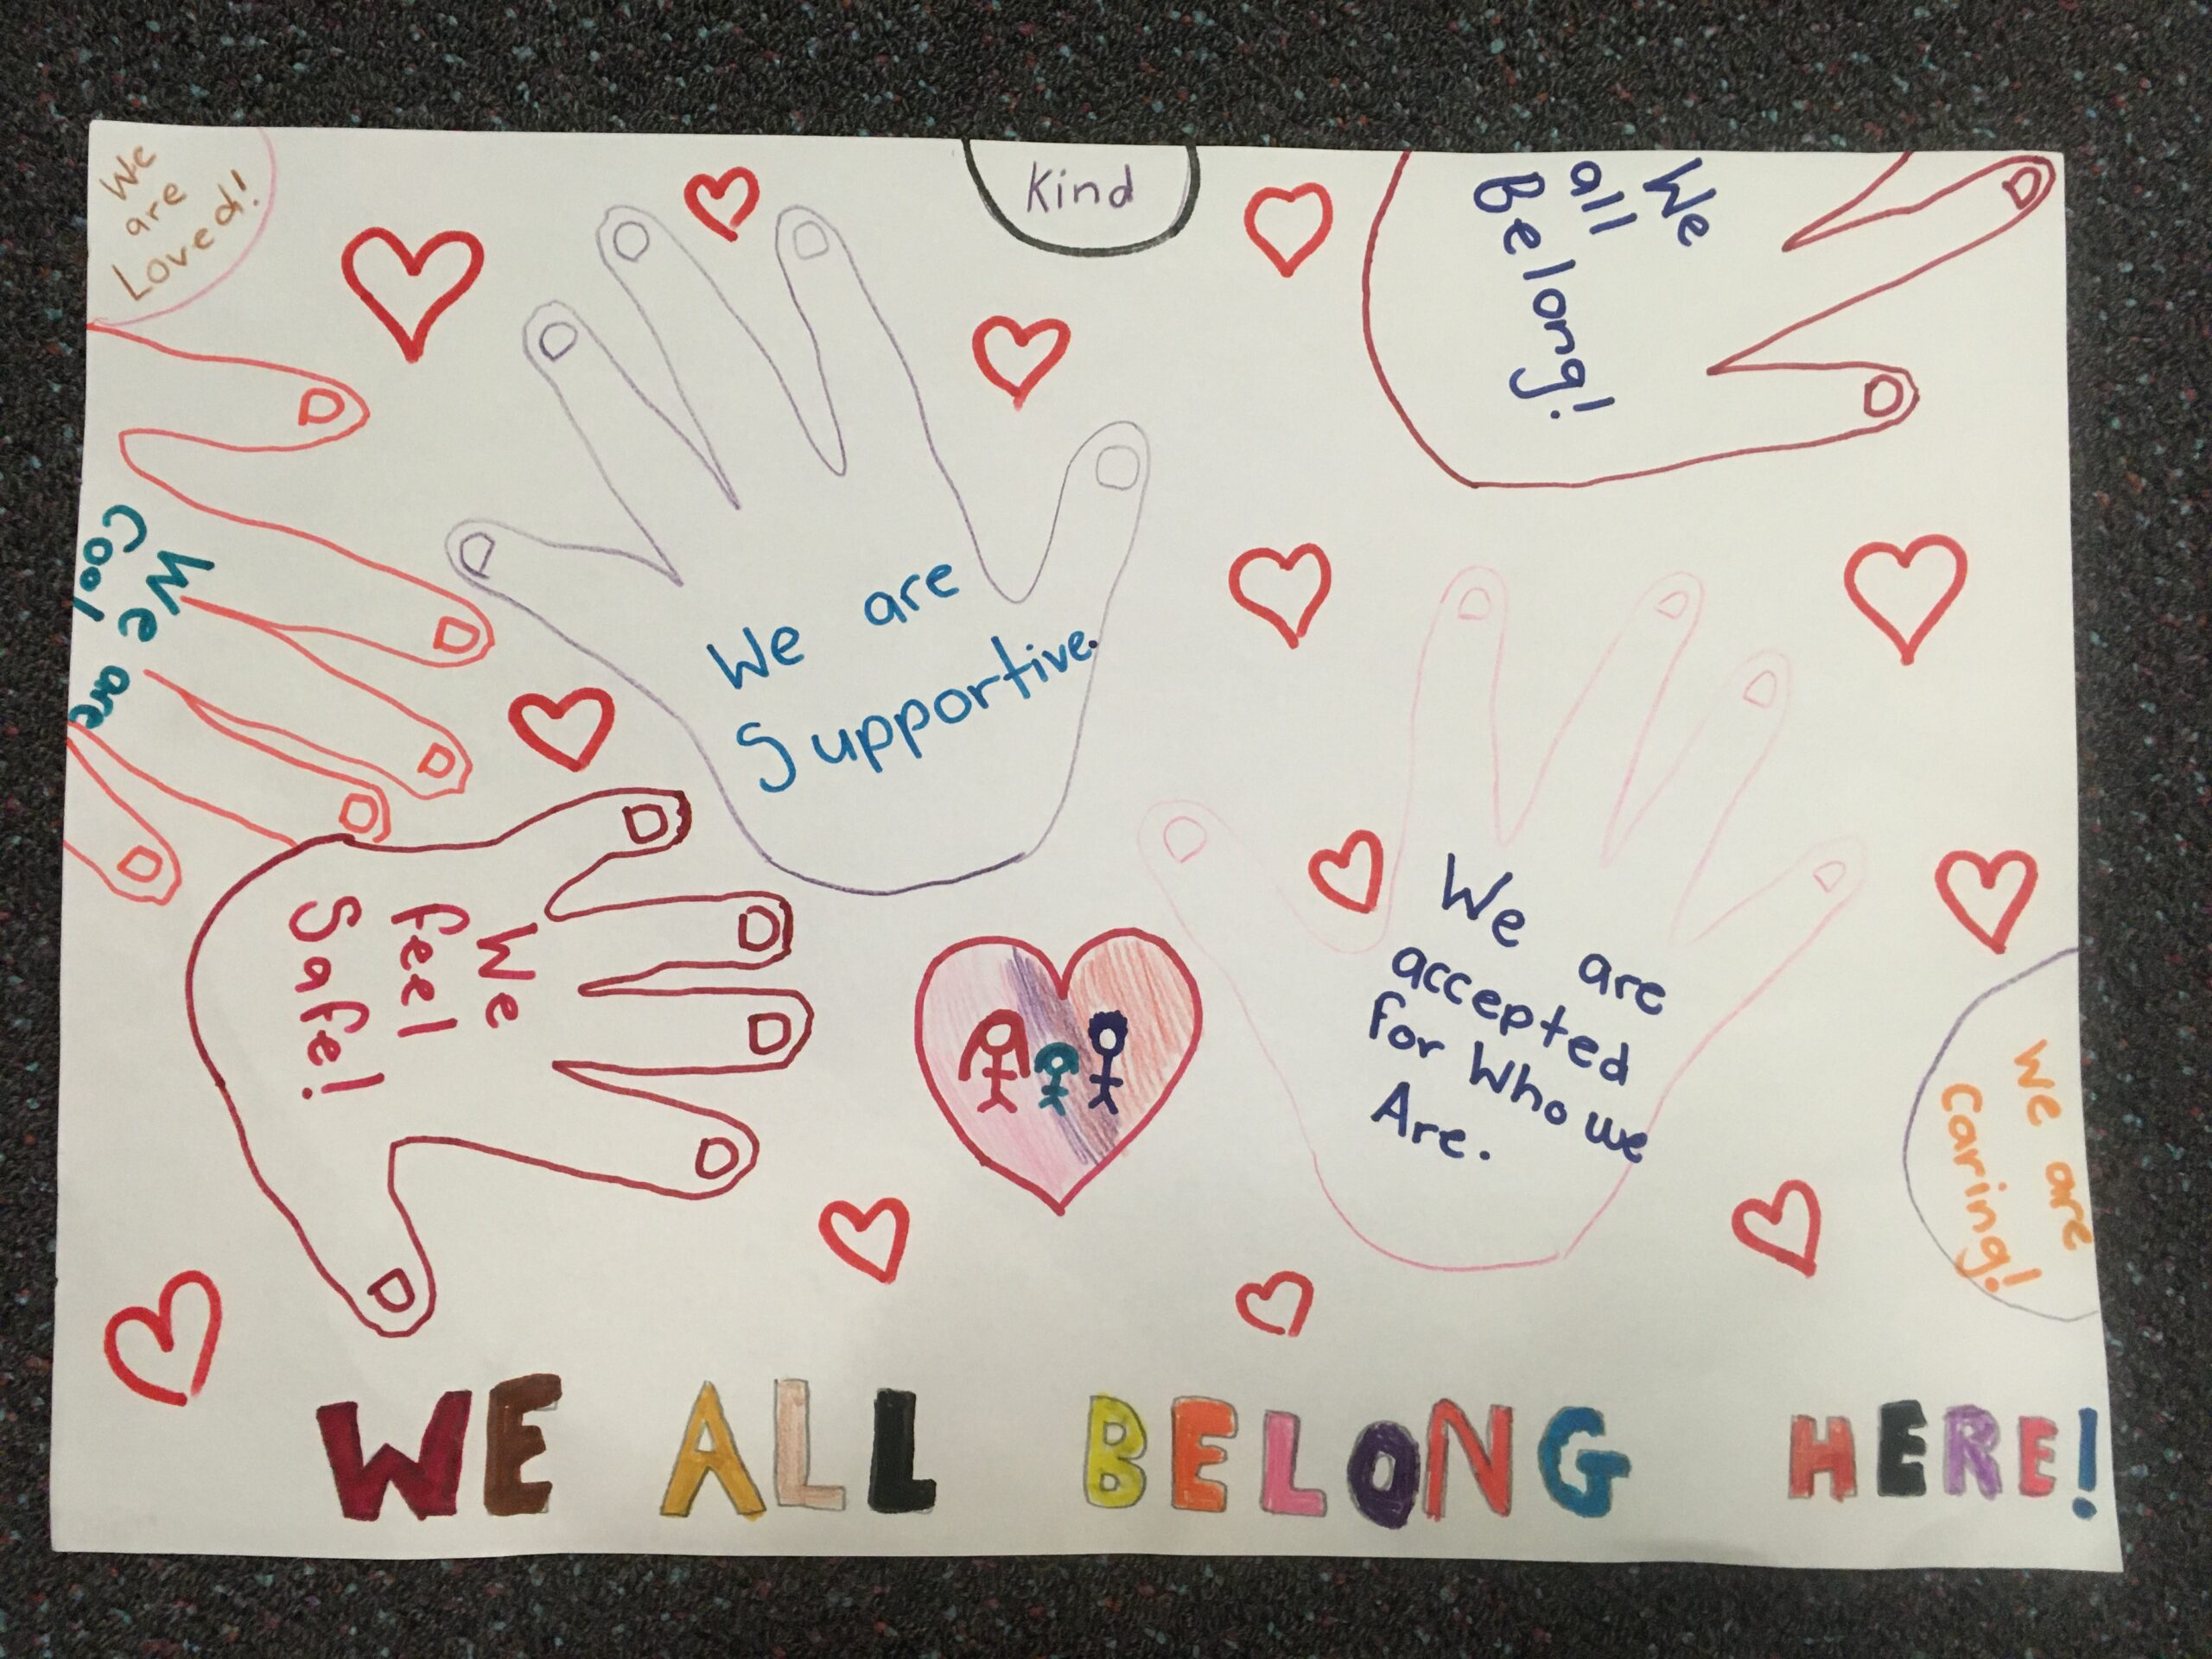 We
are
Loved!
Kind
We
all
Belong!
We are
Cool
We are
Supportive.
We
feel
Safe!
We are
accepted
for Who we
Are.
We are
Caring!
WE ALL BELONG HERE!